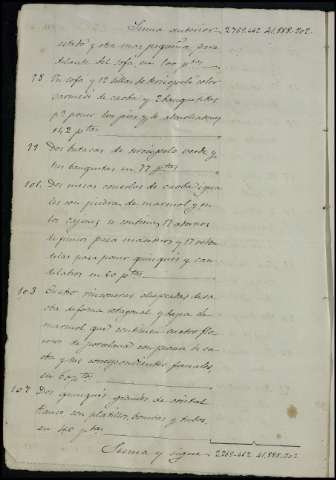 Suma anterior 2269.462 41.888.202
y otra mas pequeña para
delante del sofa, en 100 ptas
98 Un sofa y 12 sillas de terciopelo color
carmesi de caoba y 2 banquetillos
pª poner los pies y 4 almohadones
142 ptas
99 Dos butacas de terciopelo verde y
tres banquetas en 77 ptas
101. Dos mesas consolas de caoba igua
les con piedras de marmol y en
los cajones se contienen 12 adornos
de quinqués para
para poner quinqués y can
delabros en 60 ptas
103 Cuatro rinconeras chapeadas de ca
oba de forma octogonal y tapa de
marmol que contienen cuatro flo
reros de porcelana con peana de ca
oba y sus correspondientes fanales,
en 60 ptas
107 Dos quinqués grandes de cristal
blanco con platillos, bombas y tubos,
en 40 ptas
Suma y sigue 2269.462 41.888.202